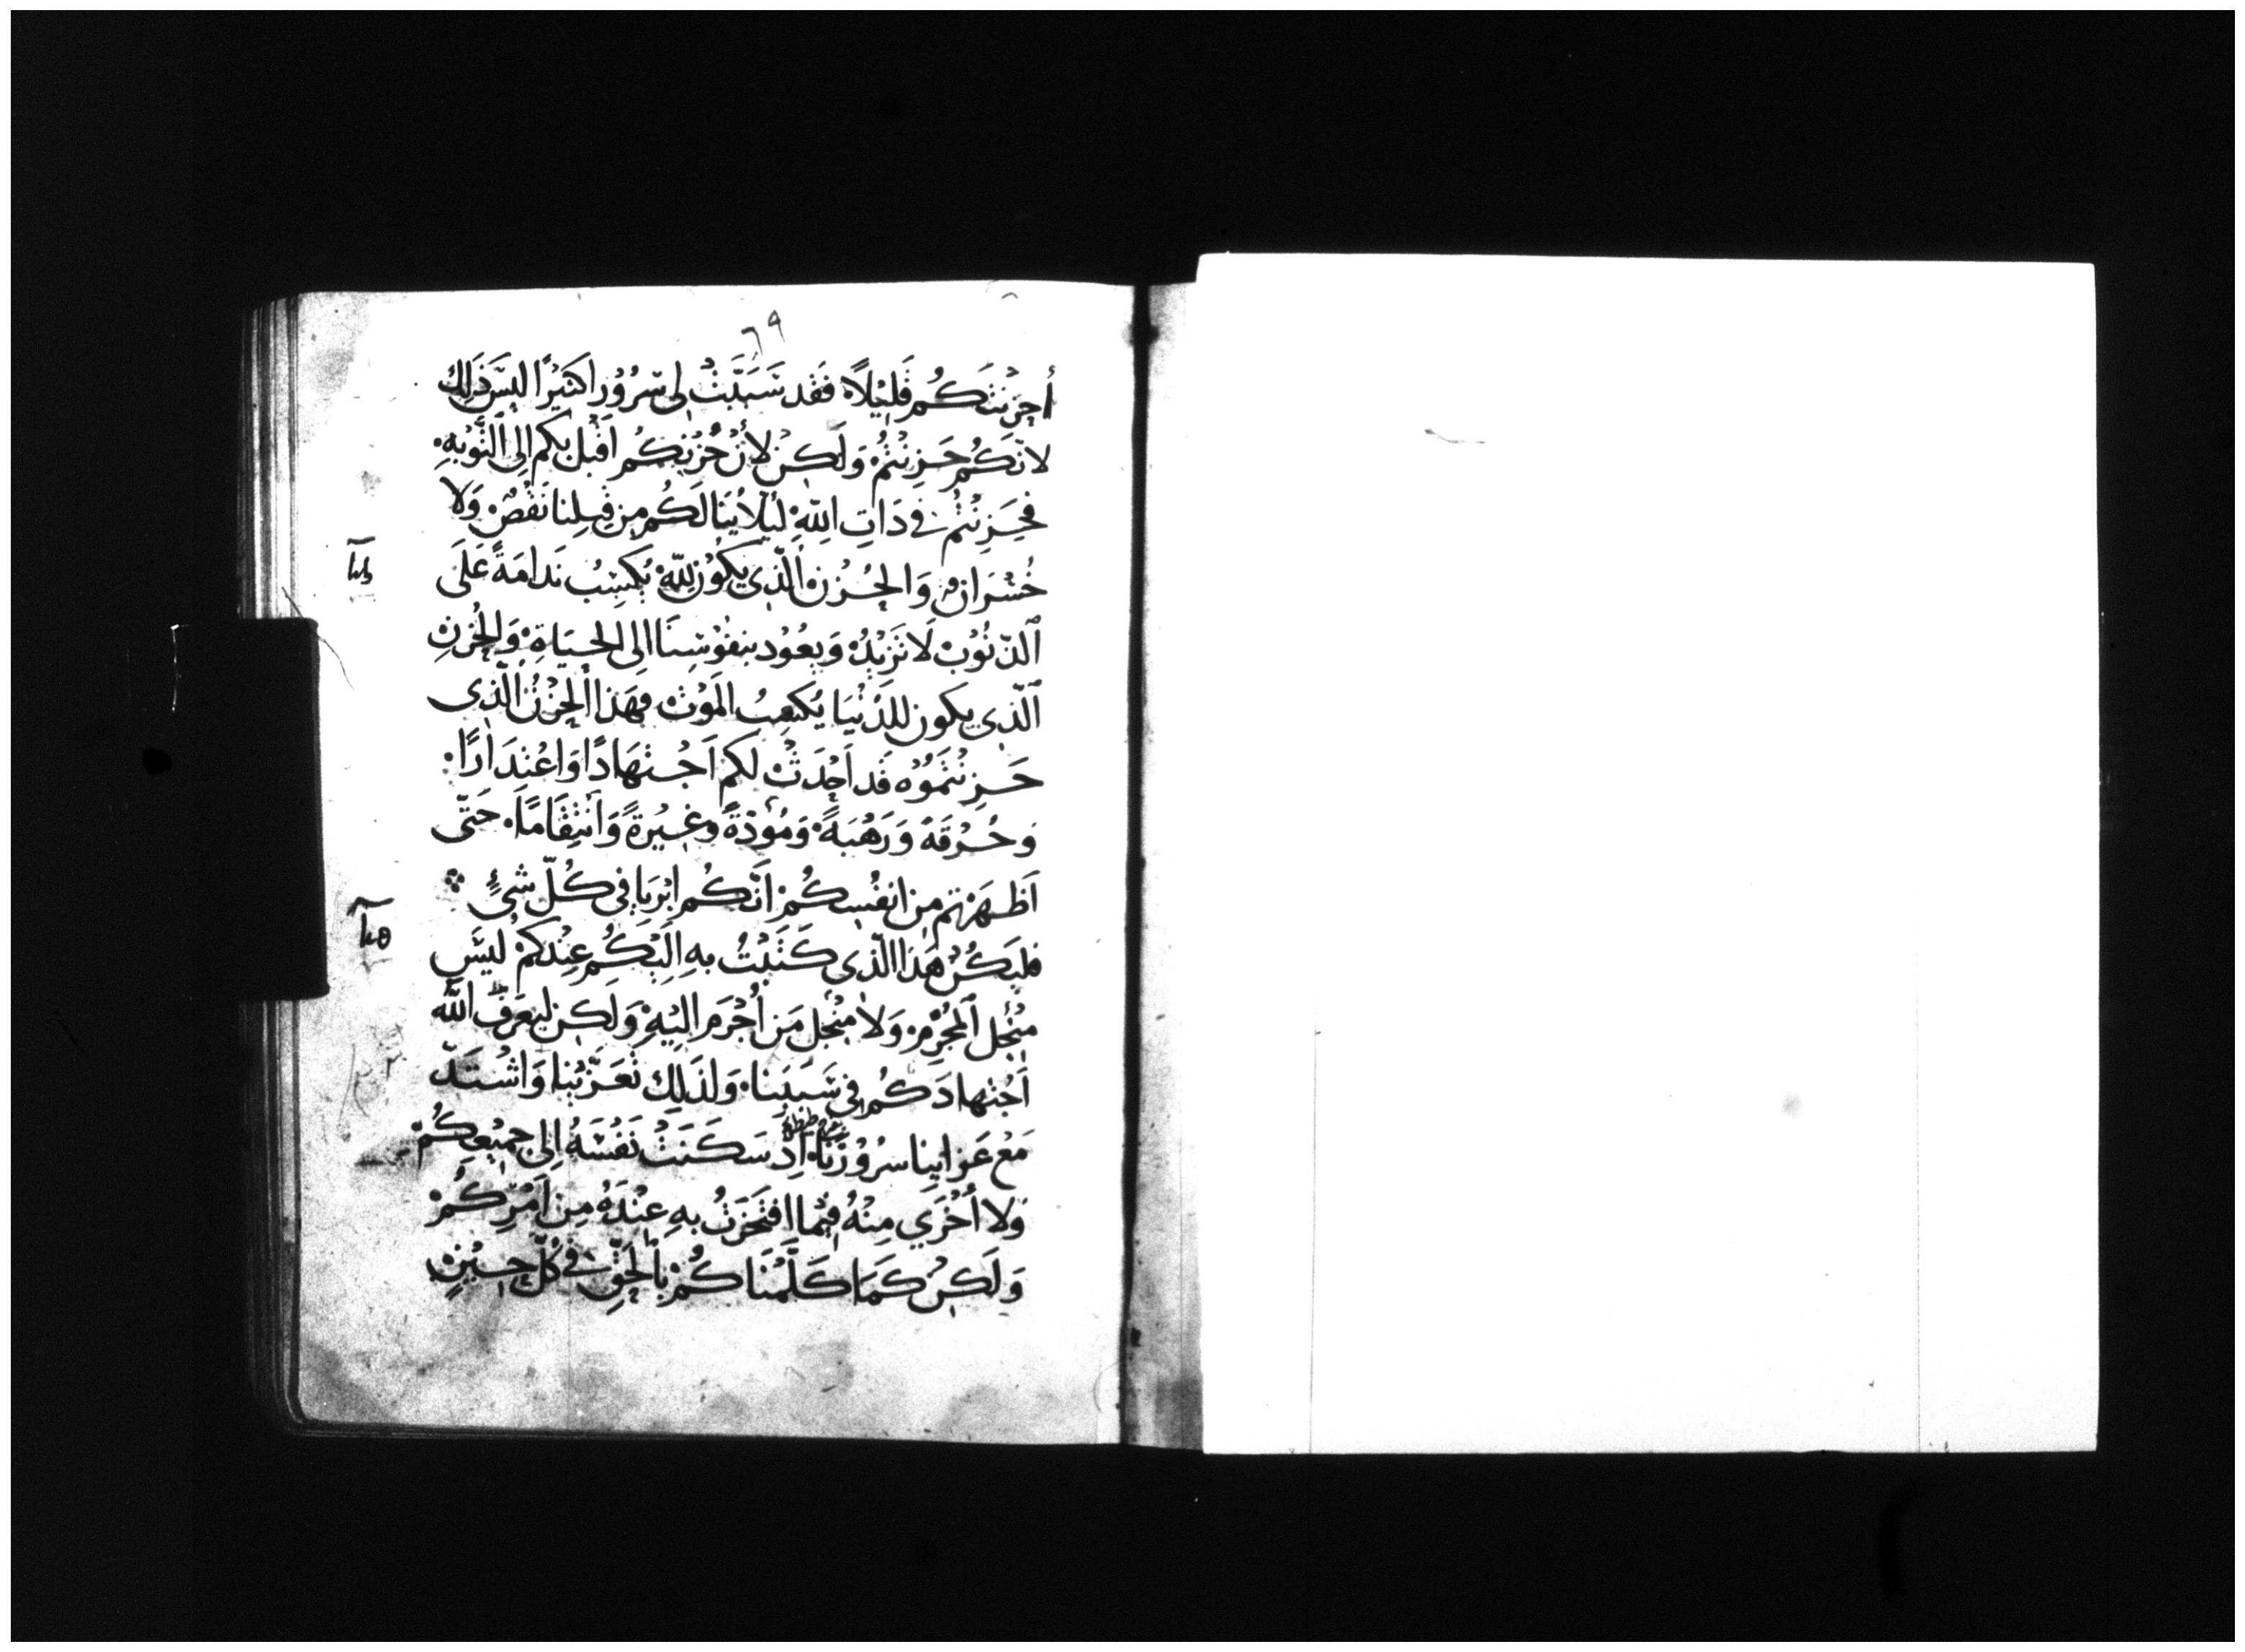 ٦٩
أحزَنتَكُم قَلِيْلاً فَقَد سَبَّبَتْ لِى سُرُوْرا كَثيْرًا لَيسَ ذَلِكَ
لانّكُم حَزِنْتُمْ وَلَكِنْ لأنْ حُزْنَكُم اَقْبَل بكم اِلى اَلتَّوْبهِ
فَحَزِنْتُم فى دَاتِ اللهِ لَيْلاً يَنا لَكُم مِن قِبلِنا نَقْصٌ وَلا
خُسْرَانٌ وَالحُزْن اَلّذِى يَكوُن لِلّهِ يُكسِبُ نَدامَةً عَلَى
اَلذّنُوْبْ لَا تَزيْدُ وَيعُوْد بنفوْسِنَا اِلى الحيَاةِ وَالحُزنِ
اَلّذِى يكون للدُنْيَا يُكعِبُ الَمَوْتْ فهَذا اَلحزْنُ الّذِى
حَزِنْتُمَوُه قَد اَحْدَثْ لكم اَجْتهَادًا وَاعْتدَارًا
وَحُرْقَهً وَرَهْبَهً وَمُؤذةً وغَيْرةً وَاَنْتِقَامًا حَتّى
اَظهَرْتم مِن انفُسِكُمْ اَنّكُم اَبْرِيَا فى كُلّ شىءٍ
فليَكُنْ هَذا الّذى كَتَبْتُ بهِ اِلَيْكُم عِنْدكمْ لَيسَ
مِنْ اَجل اَلمجُرْمِ وَلا مِنْ اجل مَن اُجْرَم اِليْهِ وَلَكِن ليَعرَف الله
اَجْتهادَكُم فى سَبَبنا وَلذلِك تَعَزّيْنا وَاشْتَدّ
مَعْ عَزايِنا سرُوْرُنا اِذْ سَكَنَتْ نَفْسَهُ اِلى جمِيْعِكُمْ
وَلا أخْزَي مِنْهُ فِيْما افتَخَرْتُ بهِ عِنْدَهُ مِن اَمْرِكُمْ
وَلَكِنْ كَمَا كَلَّمْنَاكُمْ بِالحَقِّ فى كُلّ حِيْنٍ